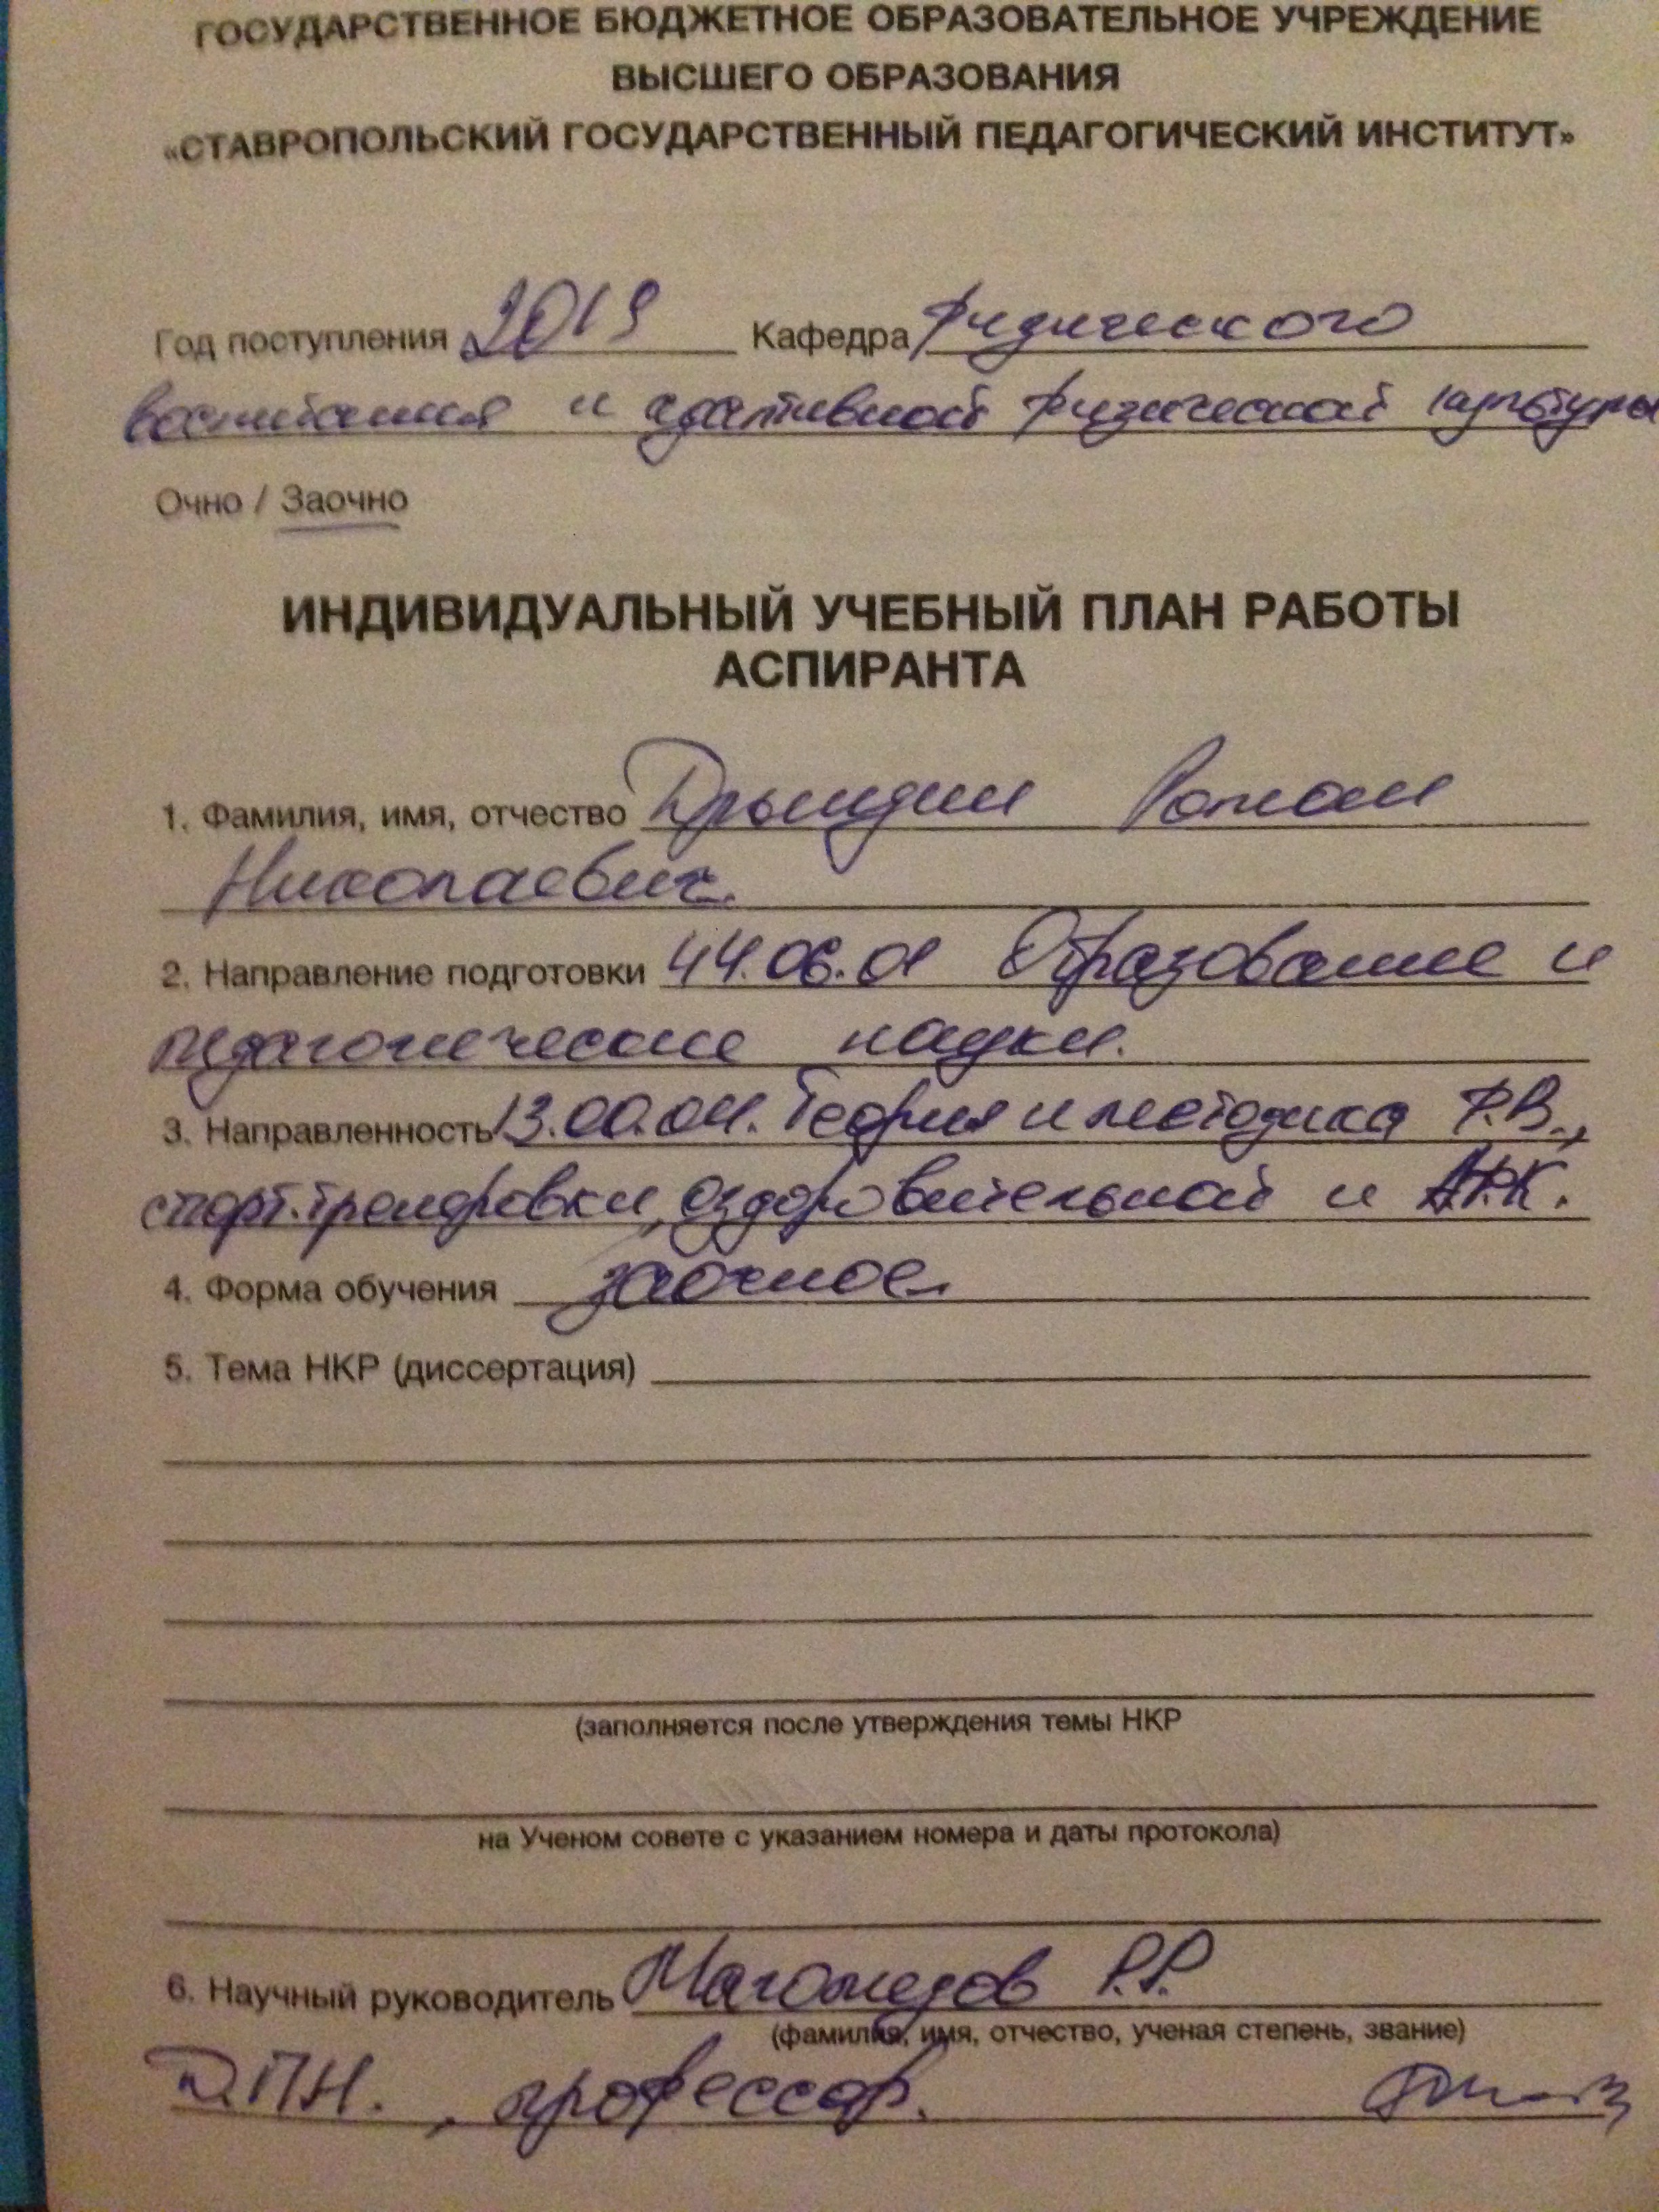 ГОСУДАРСТВЕННОЕ БЮДЖЕТНОЕ ОБРАЗОВАТЕЛЬНОЕ УЧРЕЖДЕНИЕ
ВЫСШЕГО ОБРАЗОВАНИЯ
«СТАВРОПОЛЬСКИЙ ГОСУДАРСТВЕННЫЙ ПЕДАГОГИЧЕСКИЙ ИНСТИТУТ»
Год поступления 2019 Кафедра физического
воспитания и адаптивной физической культуры
Очно / Заочно
ИНДИВИДУАЛЬНЫЙ УЧЕБНЫЙ ПЛАН РАБОТЫ
АСПИРАНТА
1. Фамилия, имя, отчество Роман
Николаевич.
2. Направление подготовки 44.06.01 Образование и
педагогические науки.
3. Направленность 13.00.04. Теория и методика Ф.В.,
спорт. тренировки, оздоровительной и АФК.
4. Форма обучения заочное.
5. Тема НКР (диссертация)
(заполняется после утверждения темы НКР
на Ученом совете с указанием номера и даты протокола)
6. Научный руководитель Магомедов Р.Р.
(фамилия, имя, отчество, ученая степень, звание)
Д.П.Н., профессор.